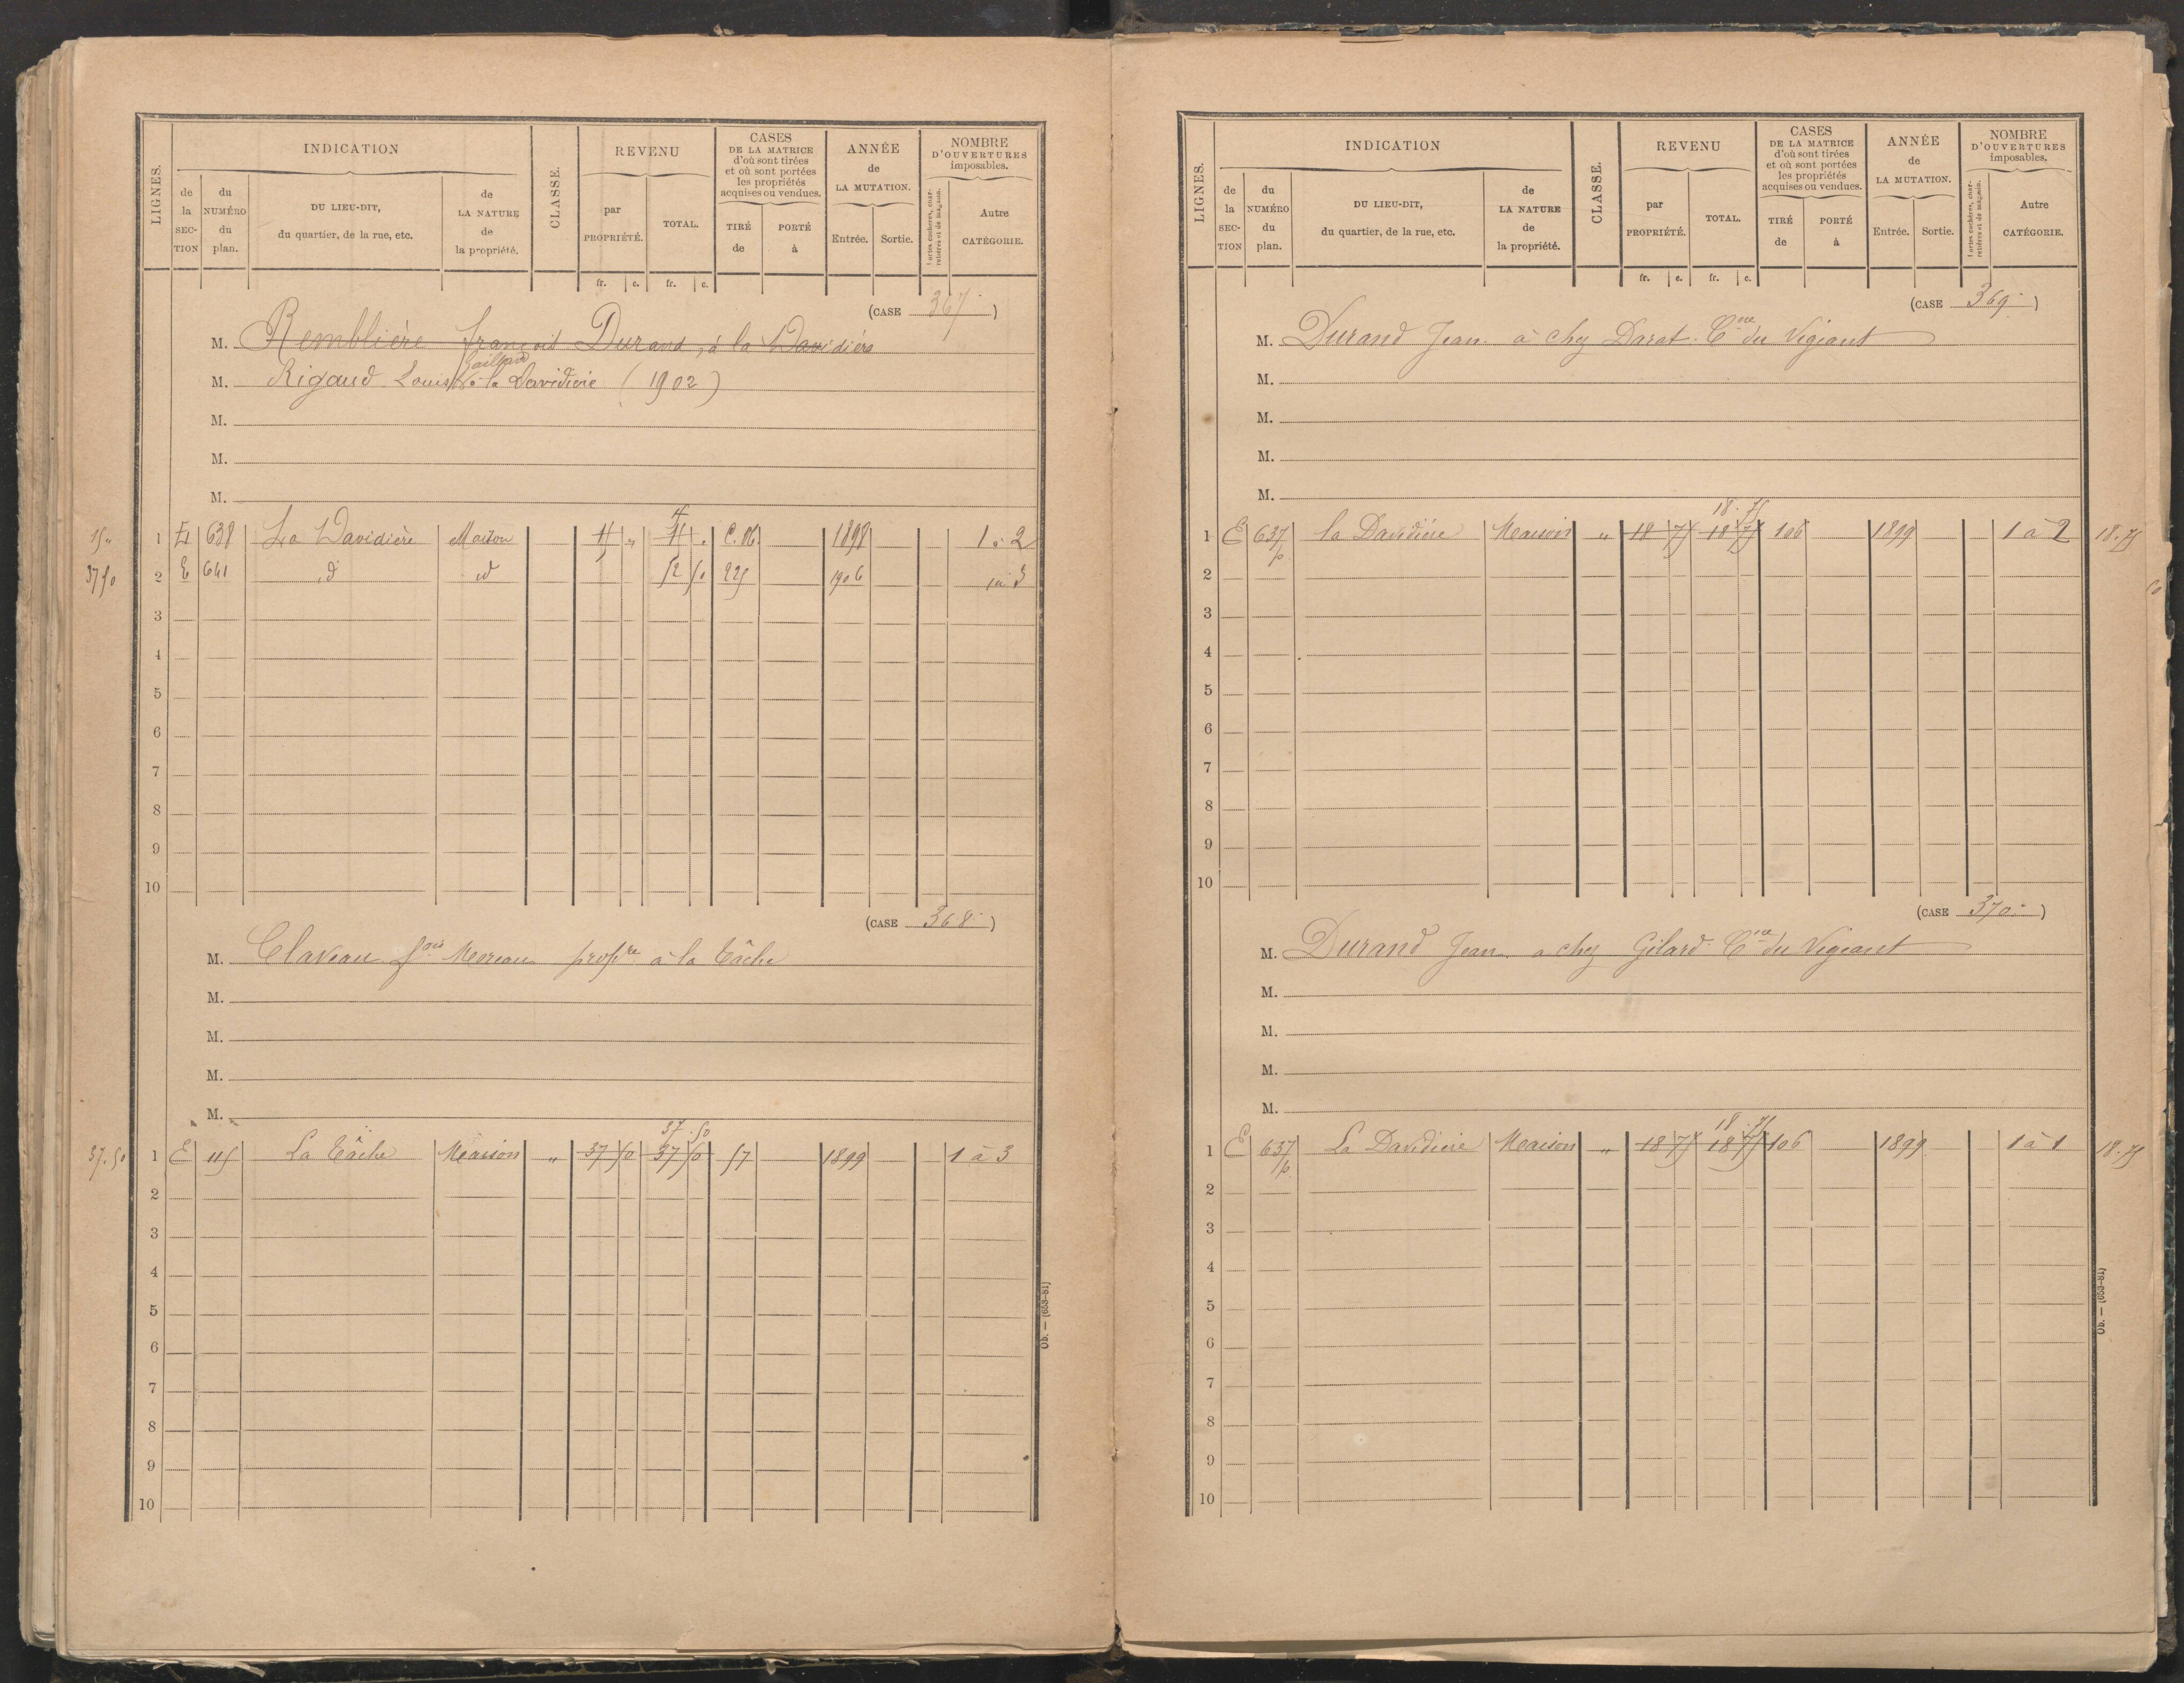 LIGNES.
INDICATION
de la SECTION
du NUMÉRO du plan.
DU LIEU-DIT, du quartier, de la rue, etc.
de LA NATURE de la propriété.
CLASSE.
REVENU
par PROPRIÉTÉ.
TOTAL.
fr. c. fr. c.
CASES
DE LA MATRICE
d'où sont tirées
et où sont portées
les propriétés
acquises ou vendues.
TIRÉ de
PORTÉ à
ANNÉE
de
LA MUTATION.
Entrée. Sortie.
NOMBRE
D'OUVERTURES
imposables.
Portes cochères, charretières et de magasin.
Autre CATÉGORIE.
(CASE 367.)
M. Remblière françois Durand, à la Davidière
Gaillard
M. Rigaud Louis à la Davidière (1902)
M.
M.
M.
15 " 1 E 638 La Davidière Maison 1898 1 à 2
37 50 2 E 641 d° d° 52 50 225 1906 1 à 3
3
4
5
6
7
8
9
10
(CASE 368.)
M. Claveau fois Moreau propre à la Tâche
M.
M.
M.
M.
37.50
37.50 1 E 115 La Tâche Maison " 37 50 37 50 57 1899 1 à 3
2
3
4
5
6
7
8
9
10
Ob. — (653-81)
LIGNES.
INDICATION
de la SECTION
du NUMÉRO du plan.
DU LIEU-DIT, du quartier, de la rue, etc.
de LA NATURE de la propriété.
CLASSE.
REVENU
par PROPRIÉTÉ.
TOTAL.
fr. c. fr. c.
CASES
DE LA MATRICE
d'où sont tirées
et où sont portées
les propriétés
acquises ou vendues.
TIRÉ de
PORTÉ à
ANNÉE
de
LA MUTATION.
Entrée. Sortie.
NOMBRE
D'OUVERTURES
imposables.
Portes cochères, charretières et de magasin.
Autre CATÉGORIE.
(CASE 369.)
M. Durand Jean à chez Darat Cne du Vigeant
M.
M.
M.
M.
18.75
1 E 637 p. la Davidière Maison " 18 75 18 75 106 1899 1 à 2 18.75
2
3
4
5
6
7
8
9
10
(CASE 370.)
M. Durand Jean a chez Gilard Cne du Vigeant
M.
M.
M.
M.
18.75
1 E 637 p. La Davidière Maison " 18 75 18 75 106 1899 1 à 1 18.75
2
3
4
5
6
7
8
9
10
Ob. — (653-81)